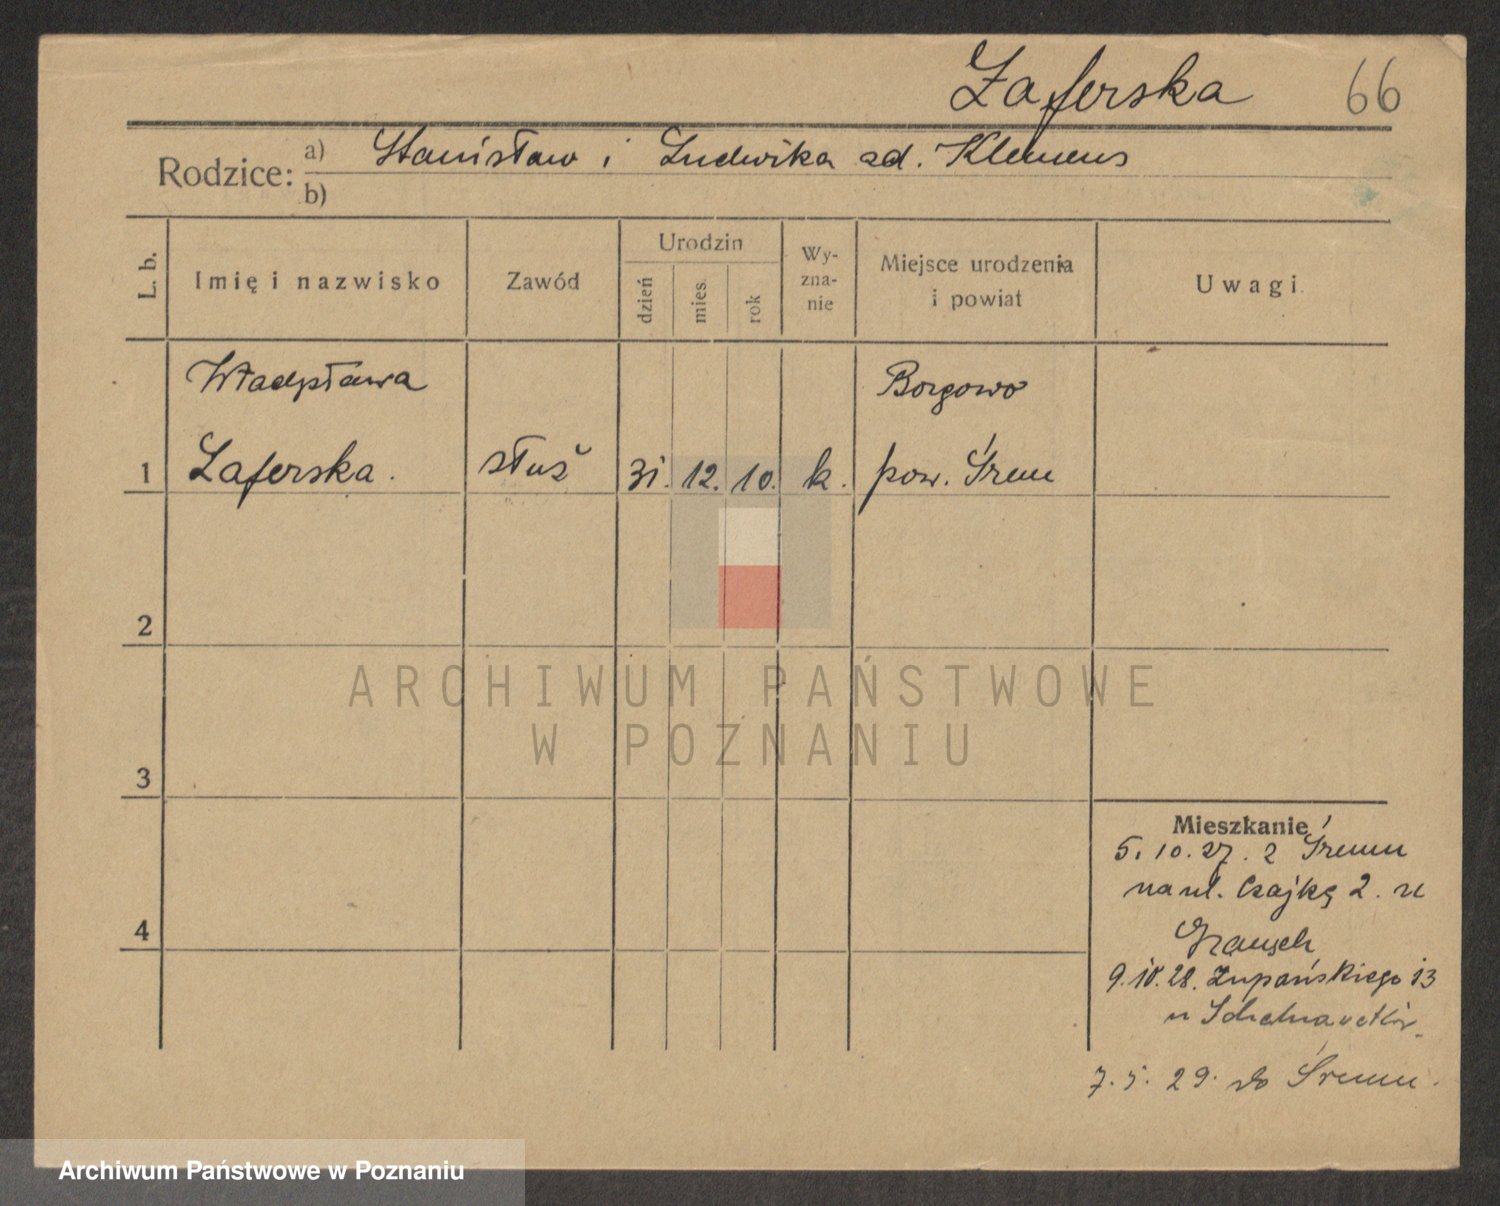 Zaferska 66
Rodzice: a) Stanisław i Ludwika zd. Klemens
b)
L. b. Imię i nazwisko Zawód Urodzin dzień mies. rok Wy-zna-nie Miejsce urodzenia i powiat Uwagi
Władysława Borgowo
1 Zaferska. służ 31. 12. 10. k. pow. Śrem
2
ARCHIWUM PAŃSTWOWE
W POZNANIU
3
Mieszkanie
5. 10. 27. z Śremu
na ul. Czajkę 2. u
9. 10. 28. Żupańskiego 13
u
4
7. 5. 29. do Śremu.
Archiwum Państwowe w Poznaniu